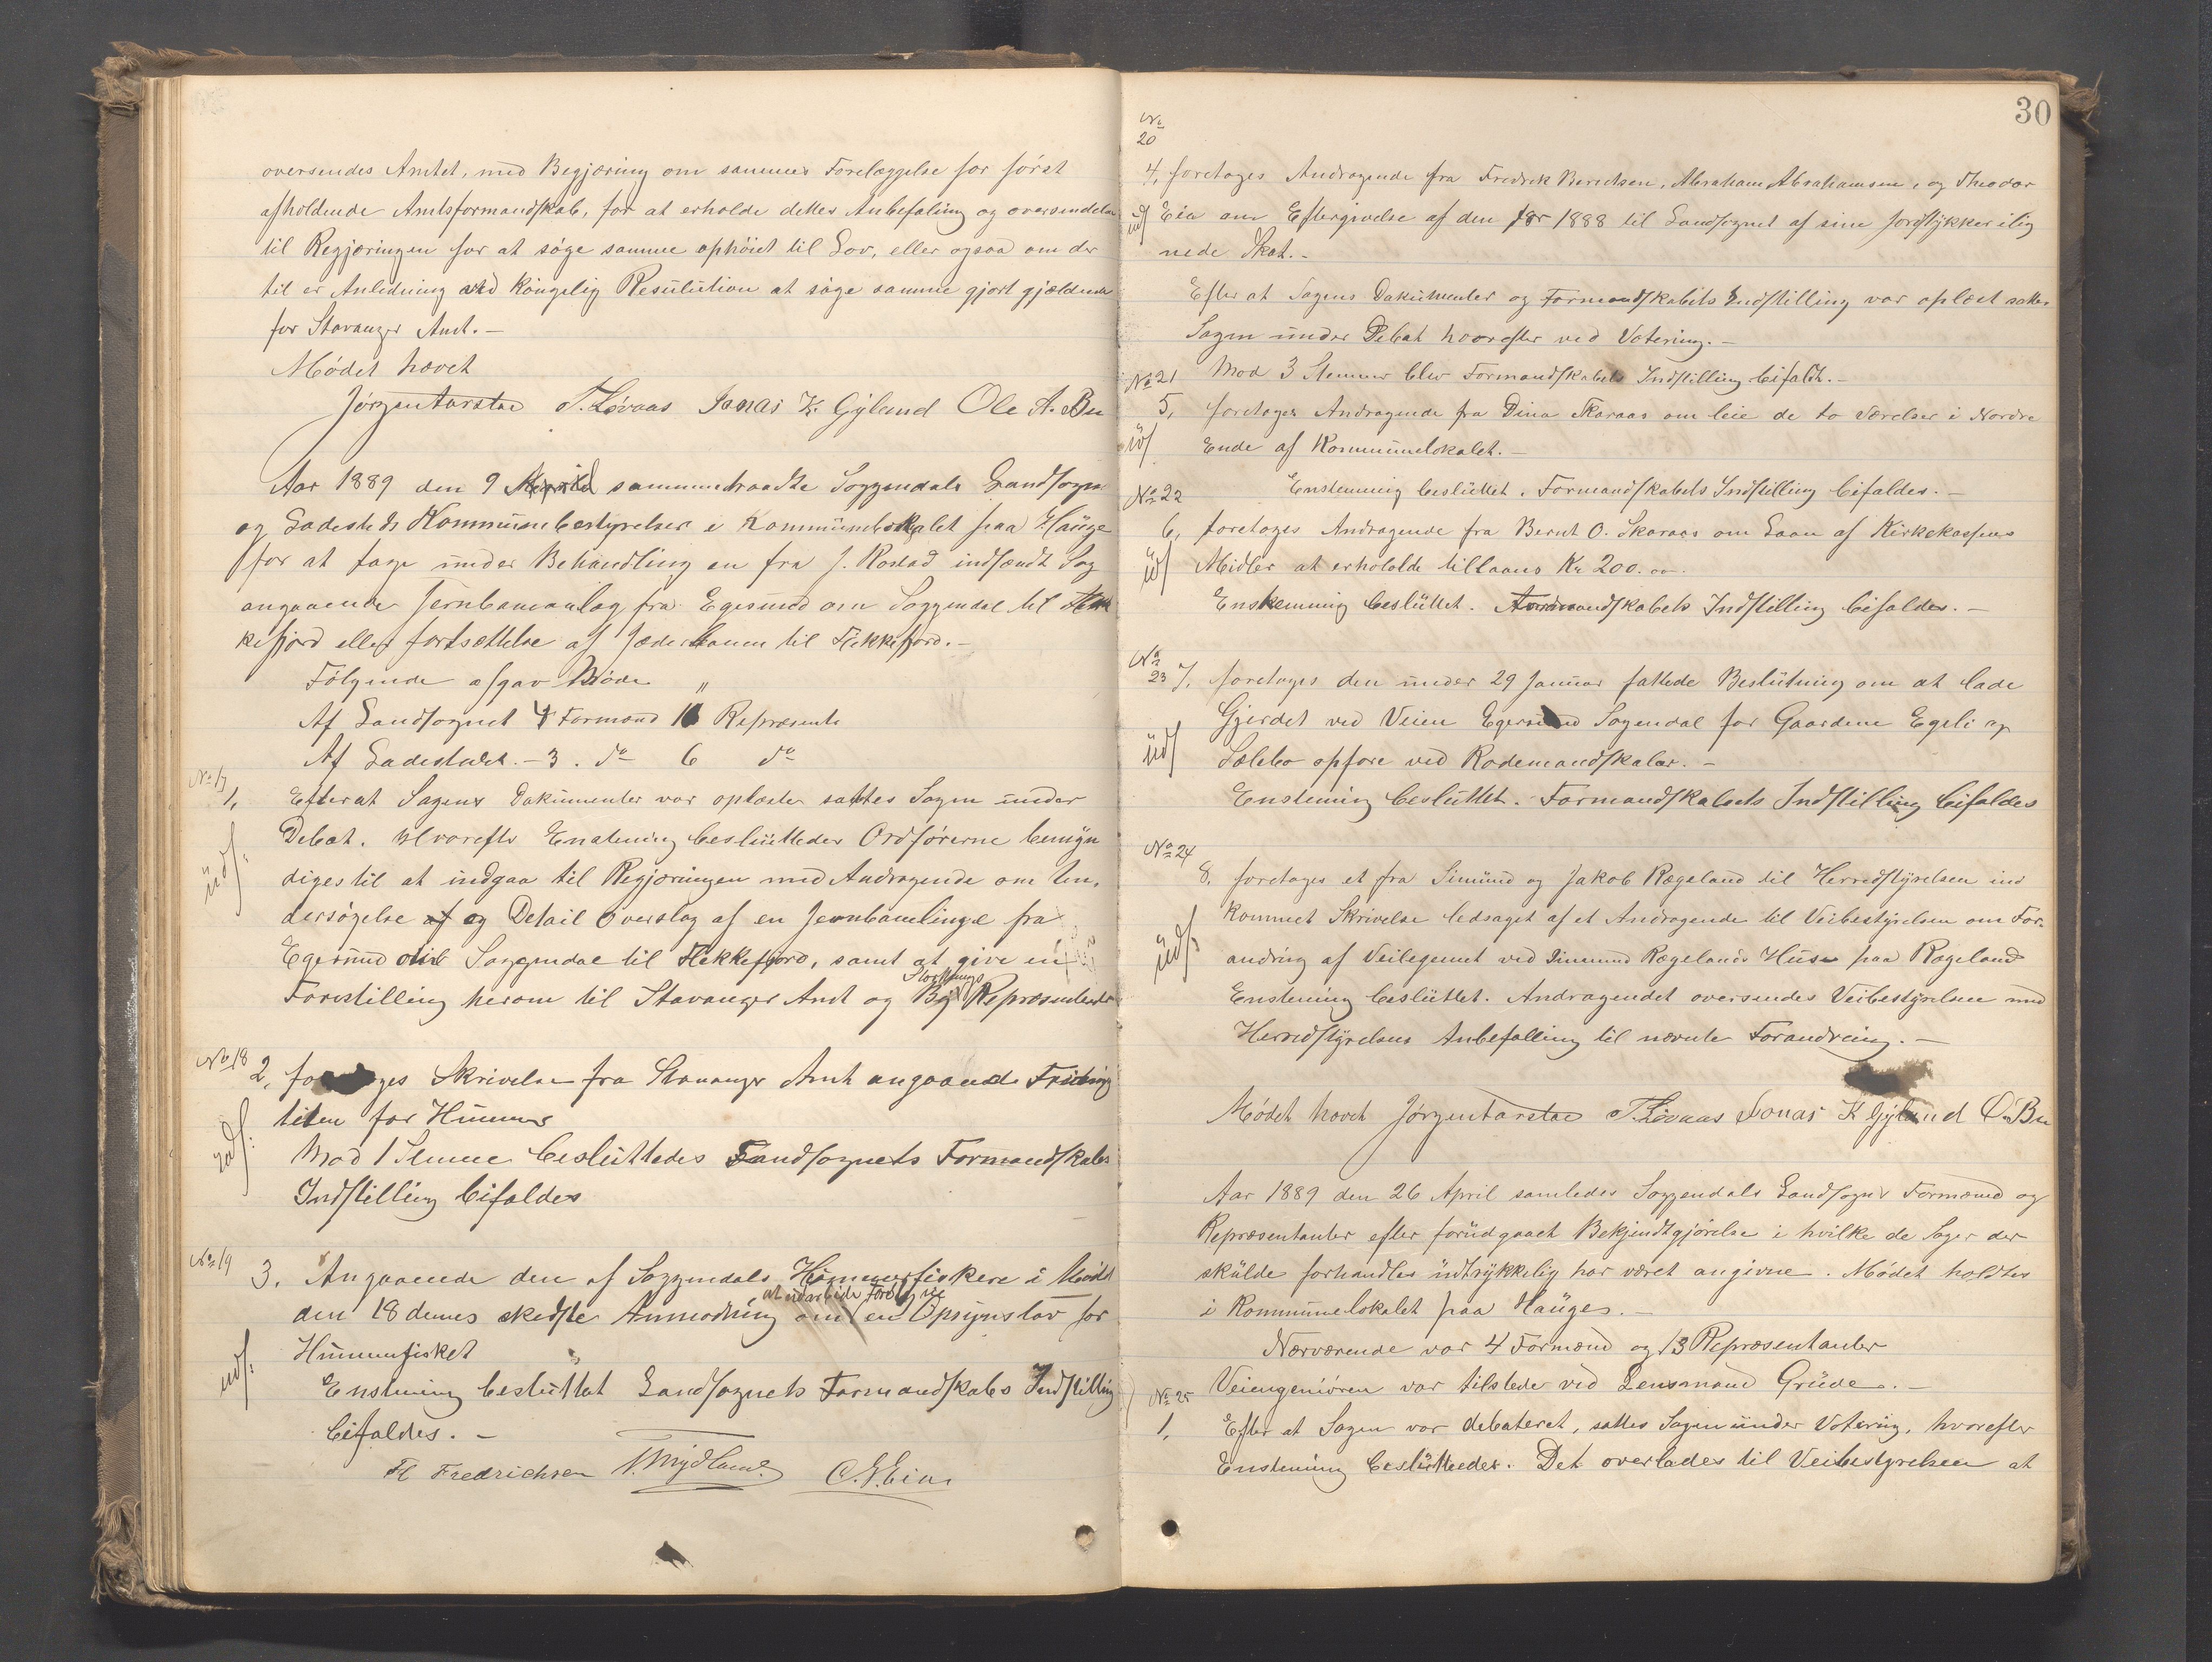 oversendes Amtet, med Begjæring om sammes Forelæggelse for først
afholdende Amtsformandskab, for at erholde dettes Anbefaling og oversendelse
til Regjæringen for at søge samme ophøiet til Lov, eller ogsaa om der
til er Anledning ved Kongelig Resulution at søge samme gjort gjældende
for Stavanger Amt. —
Mødet hævet
Jørgen Aarstad T. Løvaas Jonas K. Gyland Ole A. Bu
Aar 1889 den 9 April sammentraadte Soggendals Landsogn
og Ladesteds Kommunebestyrelser i Kommunelokalet paa Hauge
for at tage under Behandling en fra J. Rostad indsendt Sag
angaaende Jernbaneanlæg fra Egersund om Soggendal til Flek
kefjord eller fortsættelse af Jæderbanen til Flekkefjord. —
Følgende afgav Møde
Af Landsognet 4 Formænd 11 Repræsent
Af Ladestedet. — 3. do 6 do
No 17
1, Efterat Sagens Dokumenter var oplæste sattes Sagen under
Debat. Hvorefter Enstemig besluttedes Ordførerne bemyn
diges til at indgaa til Regjæringen med Andragende om Un,
dersøgelse af og Detail Overslag af en Jernbanelinge fra
Egersund over Soggendal til Flekkefjord, samt at give en
Storthings
Forestilling herom til Stavanger Amt og By Repræsentanter
udf.
No 18 2, foretages Skrivelse fra Stavanger Amt angaaende Fredning
tiden for Hummer
udf.
Mod 1 Stemme besluttedes Landsognets Formandskabs
Indstilling bifaldes
No 19 3. Angaaende den af Soggendals Hummerfiskere i Mødet
at udarbeide Forslag til
den 18 dennes skedste Anmodning om en Opsynslov for
Hummerfisket
udf.
Enstemig besluttet Landsognets Formandskabs Indstilling
bifaldes. —
Fredrichsen
30
No 20
4, foretages Andragende fra Fredrik Berentsen, Abraham Abrahamsen, og Theodor
udf Eia om Eftergivelse af den for 1888 til Landsognet af sine Jordstykker ilig
nede Skat. —
Efter at Sagens Dokumenter og Formandskabets Indstilling var oplæst sattes
Sagen under Debat hvorefter ved Votering. —
Mod 3 Stemmer blev Formandskabets Indstilling bifaldt. —
No 21
5, foretages Andragende fra Dina Skaraas om leie de to Værelser i Nordre
udf Ende af Kommunelokalet. —
Enstemmig besluttet. Formandskabets Indstilling bifaldes. —
No 22
6, foretages Andragende fra Bernt O. Skaraas om Laan af Kirkekassens
udf Midler at erholde tillaans Kr 200.00.
Enstemmig besluttet. Formandskabets Indstilling bifaldes. —
No 23 7, foretages den under 29 Januar fattede Beslutning om at lade
Gjerdet ved Veien Egersund Sogendal for Gaardene Egeli og
udf Sælebo opføre ved Rodemandskaber. —
Enstemig besluttet. Formandskabets Indstilling bifaldes
No 24
8. foretages et fra Simund og Jakob Rægeland til Herredstyrelsen ind
kommet Skrivelse ledsaget af et Andragende til Veibestyrelsen om For-
udf andring af Veilegemet ved Simund Rægelands Huse paa Rægeland
Enstemig besluttet. Andragendet oversendes Veibestyrelsen med
Herredstyrelsens Anbefalling til nævnte Forandring. —
Mødet hævet Jørgen Aarstad T. Løvaas Jonas K Gyland O. Bu
Aar 1889 den 26 April samledes Soggendals Landsogns Formænd og
Repræsentanter efter forudgaaet Bekjendtgjørelse i hvilke de Sager der
skulde forhandles udtrykkelig har været angivne. Mødet holdtes
i Kommunelokalet paa Hauge. —
Nærværende var 4 Formænd og 13 Repræsentanter
Veiengeniøren var tilstede ved Lensmand Grude. —
No 25
1, Efter at Sagen var debateret, sattes Sagen under Votering, hvorefter
Enstemig besluttedes. Det overlades til Veibestyrelsen at